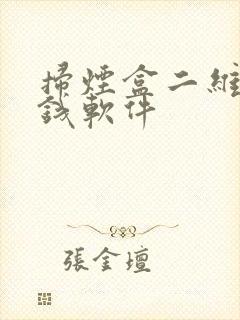 掃煙盒二維
錢軟件
張金壇